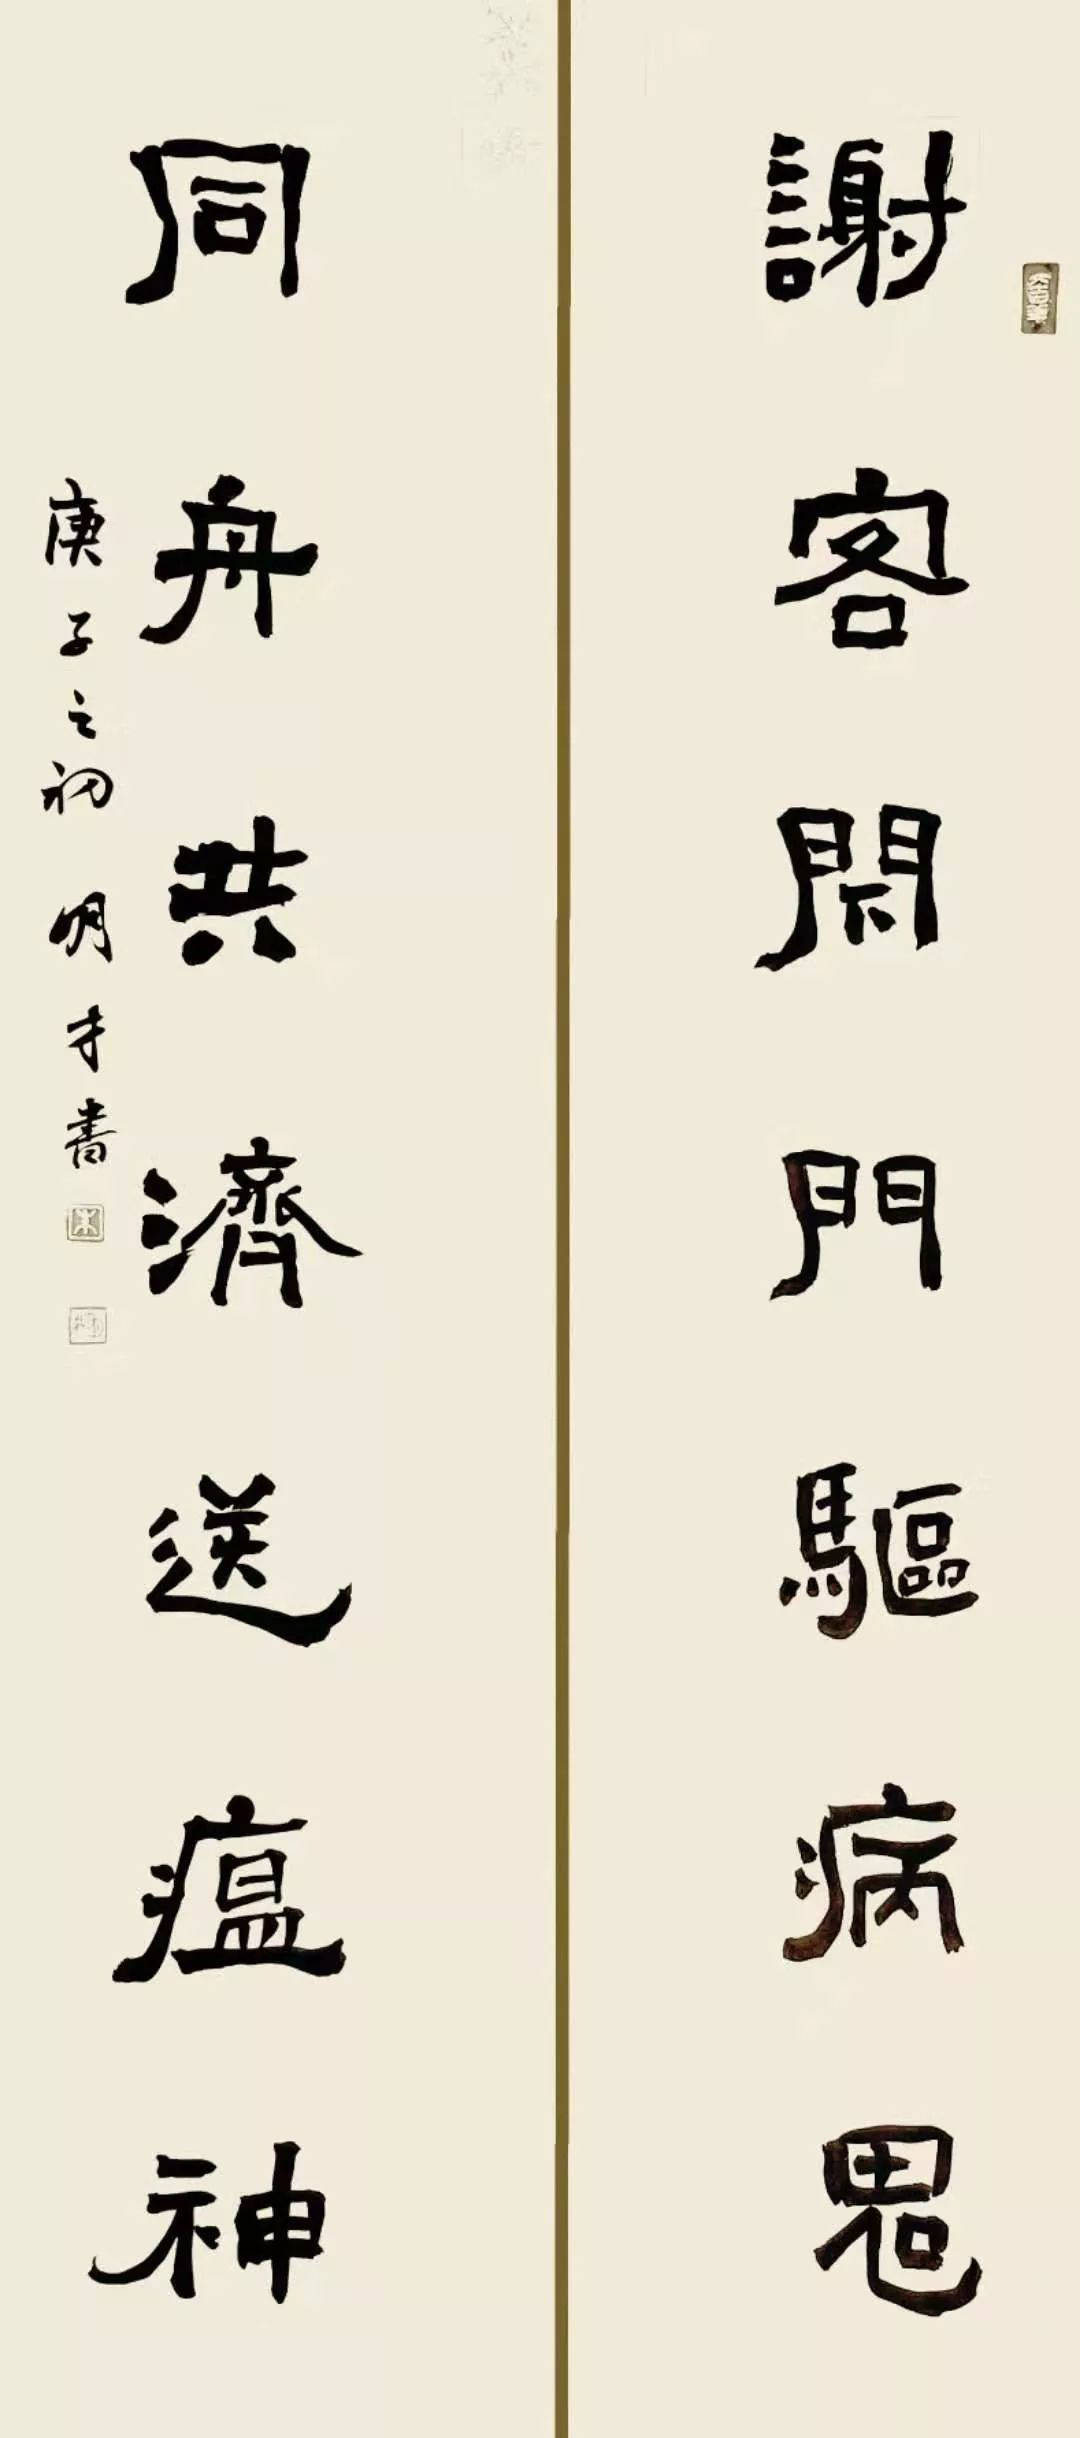 謝客閇門驅病鬼
同舟共濟送瘟神
庚子之初 明才書